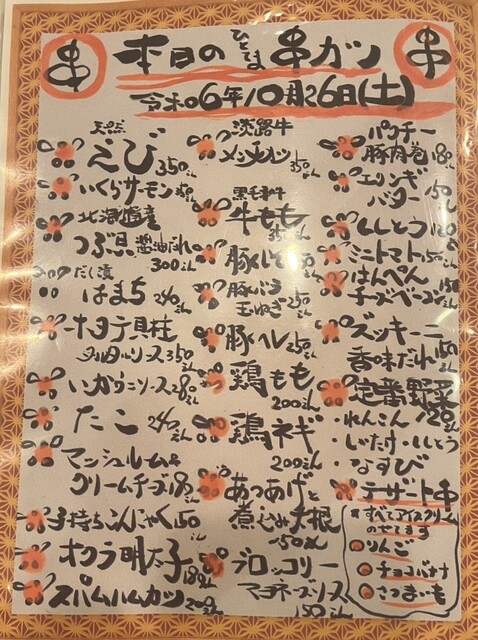 串
本日の ひとてま 串カツ
串
令和06年10月26日(土)
天然
えび 350えん
いくらサーモン
北海道産
つぶ貝 醤油だれ
300えん
だし漬
はまち 240えん
ホタテ貝柱
タルタルソース350えん
いかウニソース280えん
たこ 240えん
マッシュルーム&
クリームチーズ180えん
子持ちこんにゃく150
オクラ明太子
180えん
スパムハムカツ200えん
淡路牛
メンチカツ 350えん
黒毛和牛
牛もも
350えん
豚しそ
豚バラ
玉ねぎ250えん
豚ヘレ250えん
鶏もも
200えん
鶏ネギ
200えん
あつあげと
煮込み大根
150えん
ブロッコリー
マヨネーズソース
150えん
パクチー
豚肉巻180えん
エリンギ
バター 150えん
ししとう 120えん
ミニトマト150えん
はんぺん
チーズベーコン 150えん
ズッキーニ
香味だれ150えん
定番野菜
120えん
・れんこん
・しいたけ・ししとう
・なすび
デザート串
*すべてアイスクリーム
のせてます
りんご
チョコバナナ
さつまいも